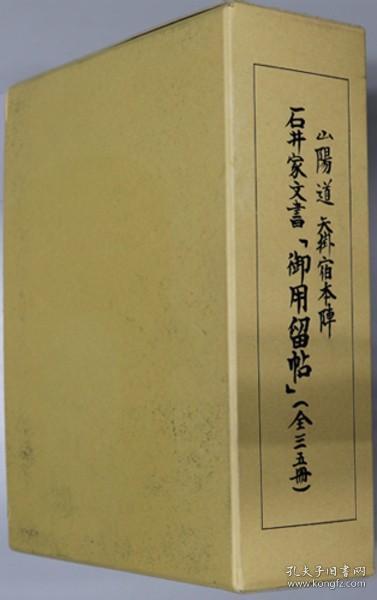 山陽道 矢掛宿本陣
石井家文書「御用留帖」(全三五冊)
孔夫子旧书网